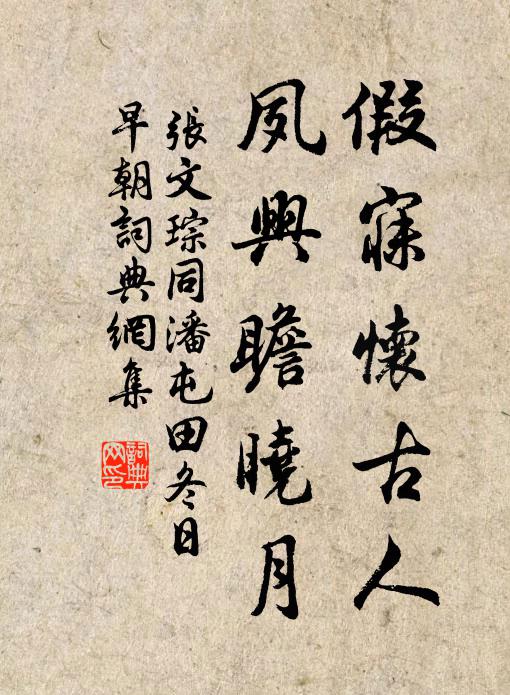 假寐懷古人
夙興瞻曉月
張文琮同潘屯田冬日
早朝詞典網集
詞典
网印